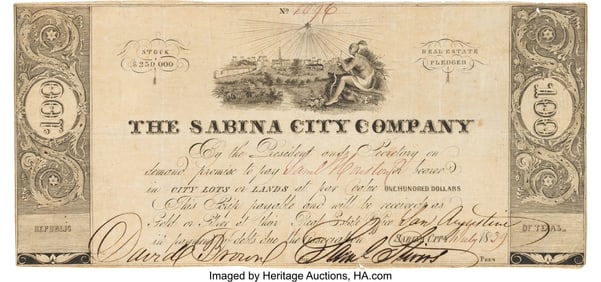 No 1096
STOCK
$250,000
REAL ESTATE
PLEDGED
100
100
THE SABINA CITY COMPANY
By the President and Secretary on
demand promise to pay Saml Houston or bearer
in CITY LOTS or LANDS at par value ONE HUNDRED DOLLARS
This Scrip payable and will be received as
Gold or Silver at their Real Estate Office San Augustine
in payment of debts due the Corporation SABINA CITY July 1839
REPUBLIC
OF TEXAS.
David Brown
PRES
Imaged by Heritage Auctions, HA.com